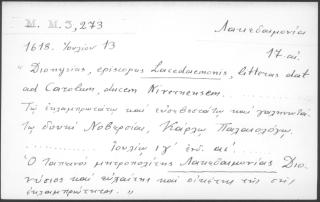 M. M. 3, 273 Λακεδαιμονία
1618. Ἰουλίου 13 17. αἰ.
"Dionysius, episcopus Lacedaemonis, litteras dat
ad Carolum, ducem Nivernensem.
Τῷ ἐκλαμπροτάτῳ καὶ εὐσεβεστάτῳ καὶ γαληνοτά-
τῳ δουκὶ Νοβερσίας, Καρόλῳ Παλαιολόγῳ,
Ἰουλίῳ ιγʹ ἰνδ. αʹ.
Ὁ ταπεινὸς μητροπολίτης Λακεδαιμονίας Διο-
νύσιος καὶ εὐχέτης καὶ οἰκέτης τῆς σῆς
ἐκλαμπρότητος."